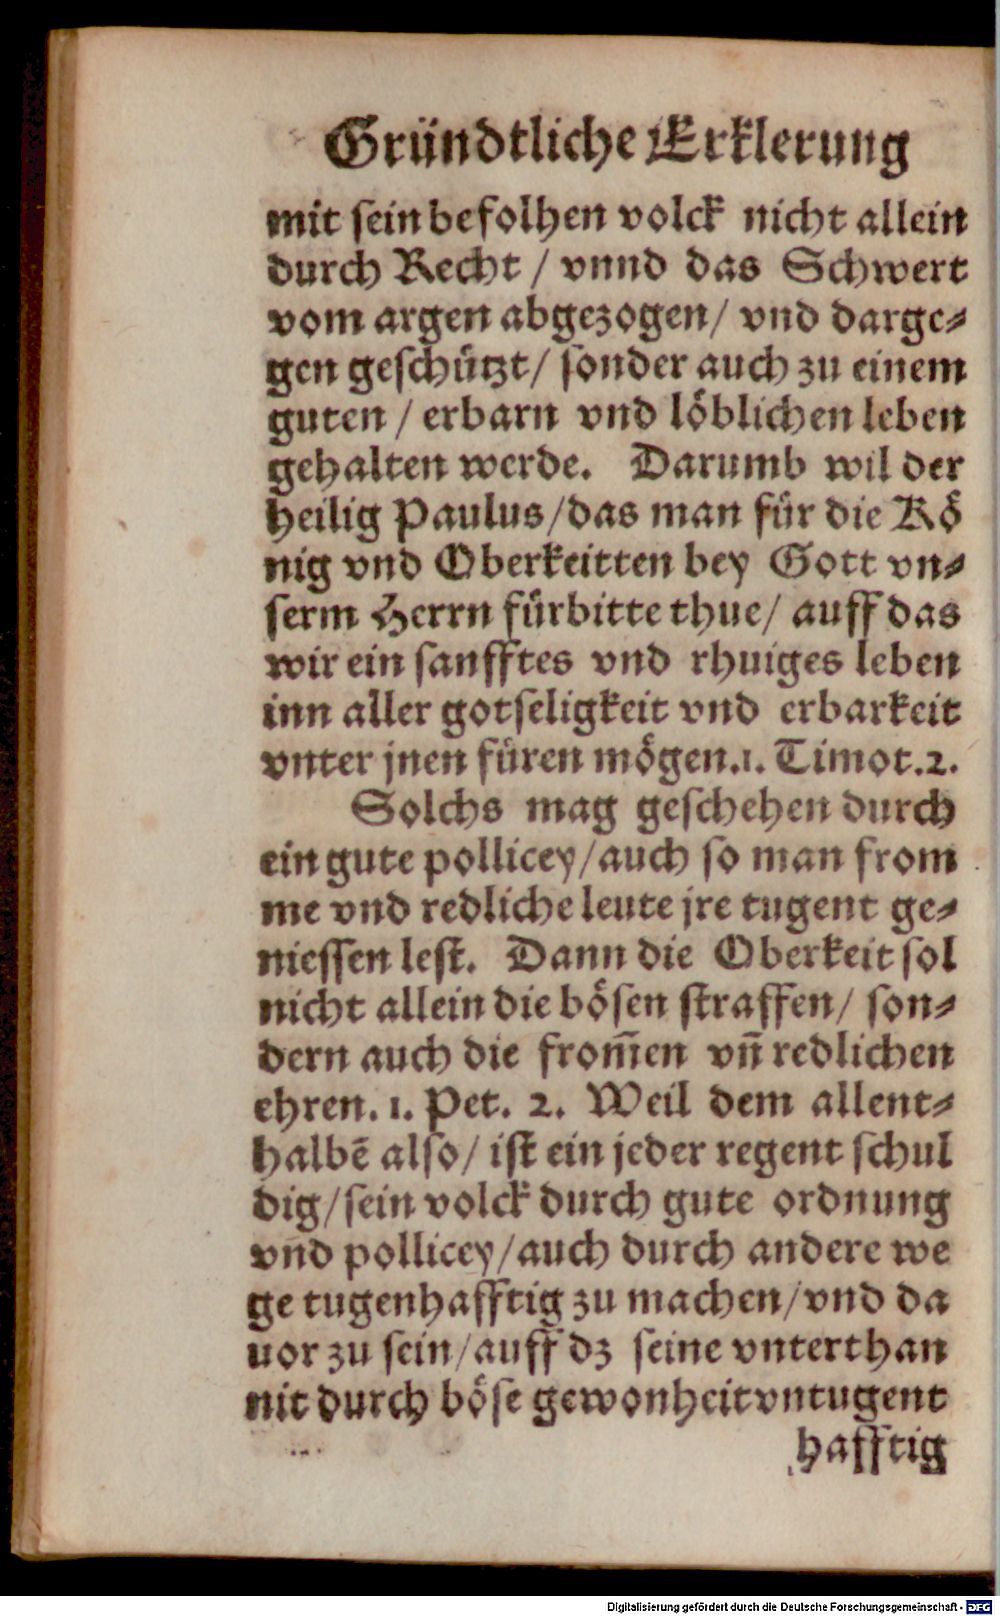 Gründtliche Erklerung
mit sein befolhen volck nicht allein
durch Recht / vnnd das Schwert
vom argen abgezogen / vnd darge-
gen geschützt / sonder auch zu einem
guten / erbarn vnd löblichen leben
gehalten werde. Darumb wil der
heilig Paulus / das man für die Kö
nig vnd Oberkeitten bey Gott vn-
serm Herrn fürbitte thue / auff das
wir ein sanfftes vnd rhuiges leben
inn aller gotseligkeit vnd erbarkeit
vnter jnen füren mögen. 1. Timot. 2.
Solchs mag geschehen durch
ein gute pollicey / auch so man from
me vnd redliche leute jre tugent ge-
niessen lest. Dann die Oberkeit sol
nicht allein die bösen straffen / son-
dern auch die from̃en vñ redlichen
ehren. 1. Pet. 2. Weil dem allent-
halbẽ also / ist ein jeder regent schul
dig / sein volck durch gute ordnung
vnd pollicey / auch durch andere we
ge tugenhafftig zu machen / vnd da
uor zu sein / auff dz seine vnterthan
nit durch böse gewonheit vntugent
hafftig
Digitalisierung gefördert durch die Deutsche Forschungsgemeinschaft - DFG